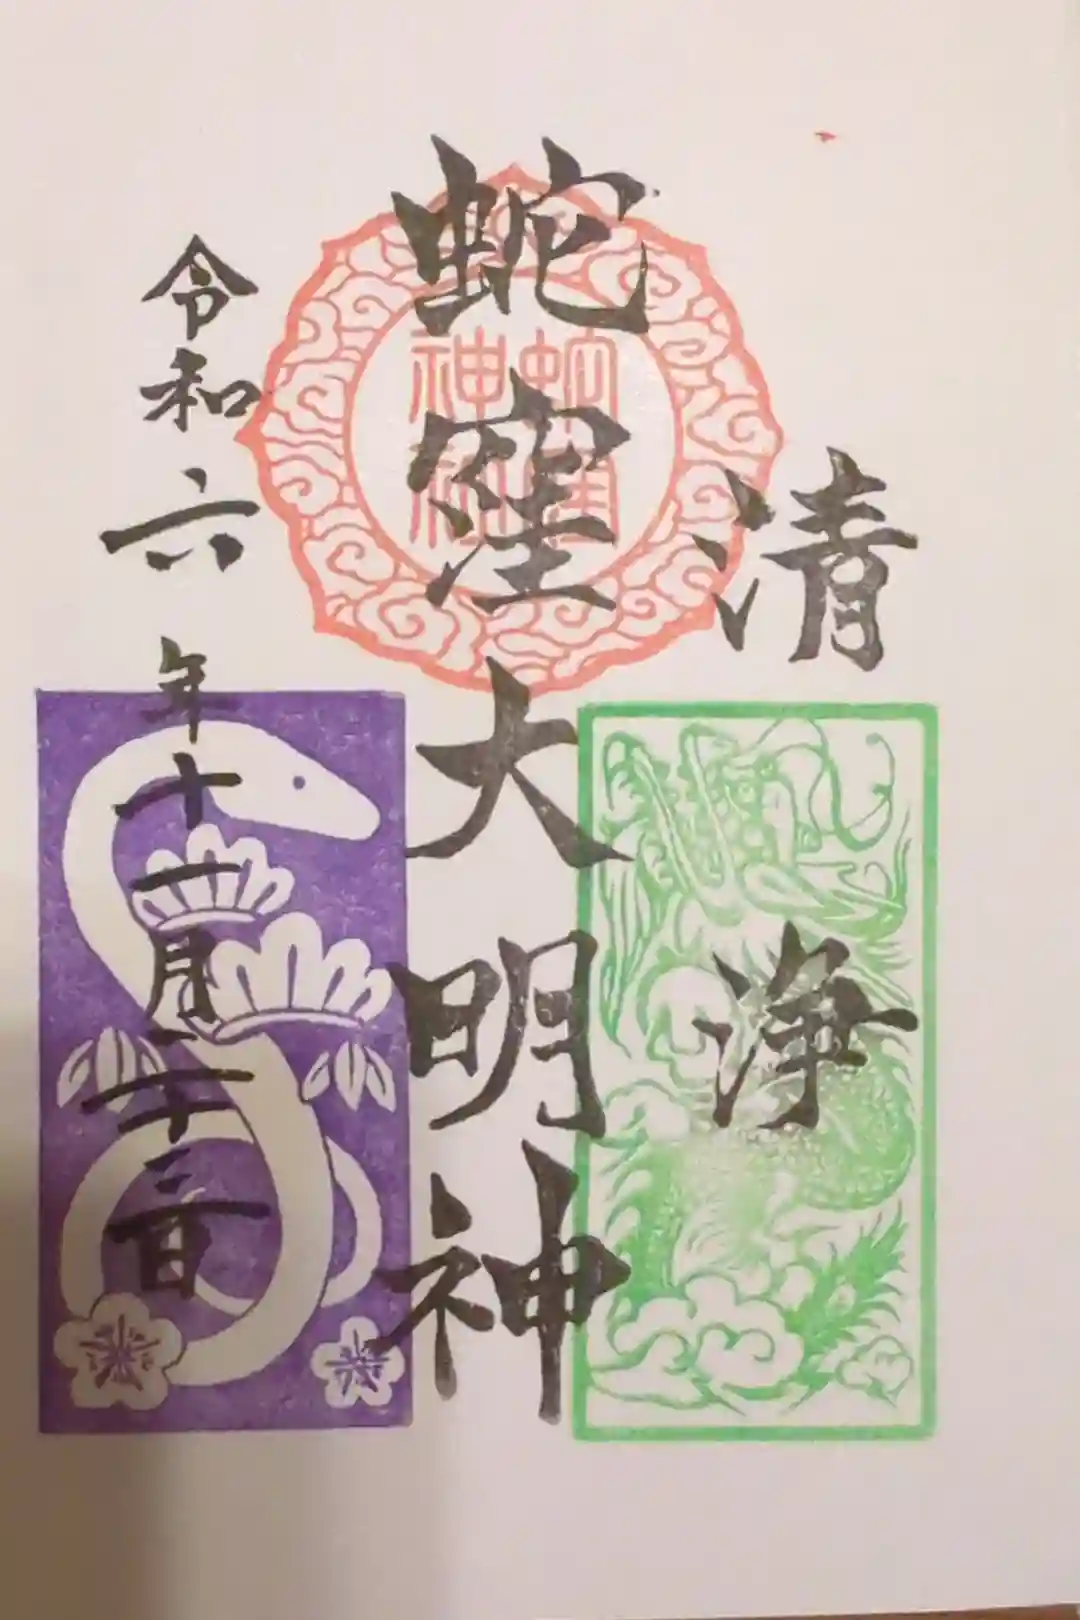 清浄
蛇窪大明神
令和六年十一月二十三日
蛇窪
神社